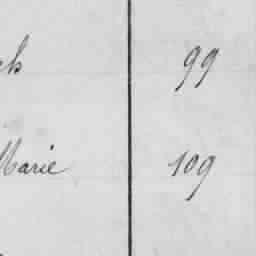 99
Marie 109